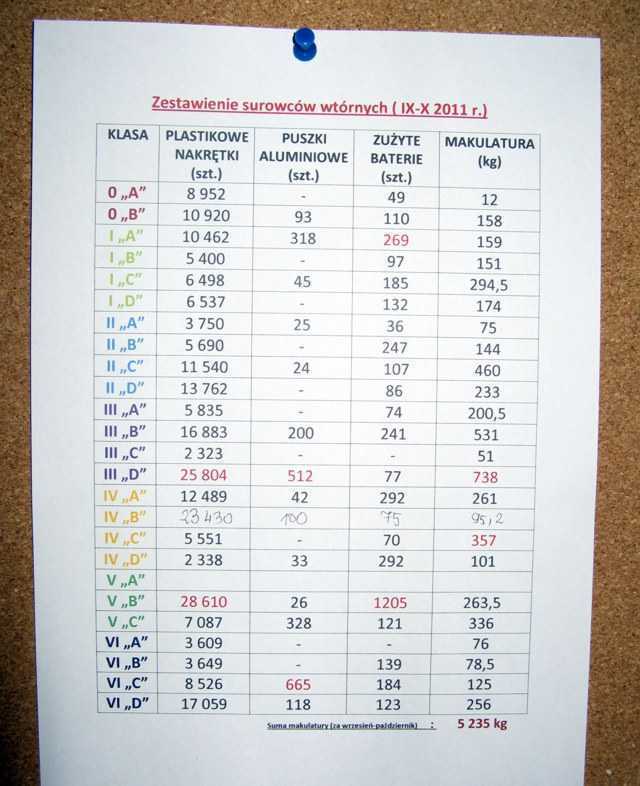 Zestawienie surowców wtórnych ( IX-X 2011 r.)
KLASA PLASTIKOWE NAKRĘTKI (szt.) PUSZKI ALUMINIOWE (szt.) ZUŻYTE BATERIE (szt.) MAKULATURA (kg)
0 „A” 8 952 - 49 12
0 „B” 10 920 93 110 158
I „A” 10 462 318 269 159
I „B” 5 400 - 97 151
I „C” 6 498 45 185 294,5
I „D” 6 537 - 132 174
II „A” 3 750 25 36 75
II „B” 5 690 - 247 144
II „C” 11 540 24 107 460
II „D” 13 762 - 86 233
III „A” 5 835 - 74 200,5
III „B” 16 883 200 241 531
III „C” 2 323 - - 51
III „D” 25 804 512 77 738
IV „A” 12 489 42 292 261
IV „B” 23 430 100 75 95,2
IV „C” 5 551 - 70 357
IV „D” 2 338 33 292 101
V „A”
V „B” 28 610 26 1205 263,5
V „C” 7 087 328 121 336
VI „A” 3 609 - - 76
VI „B” 3 649 - 139 78,5
VI „C” 8 526 665 184 125
VI „D” 17 059 118 123 256
Suma makulatury (za wrzesień-październik) : 5 235 kg